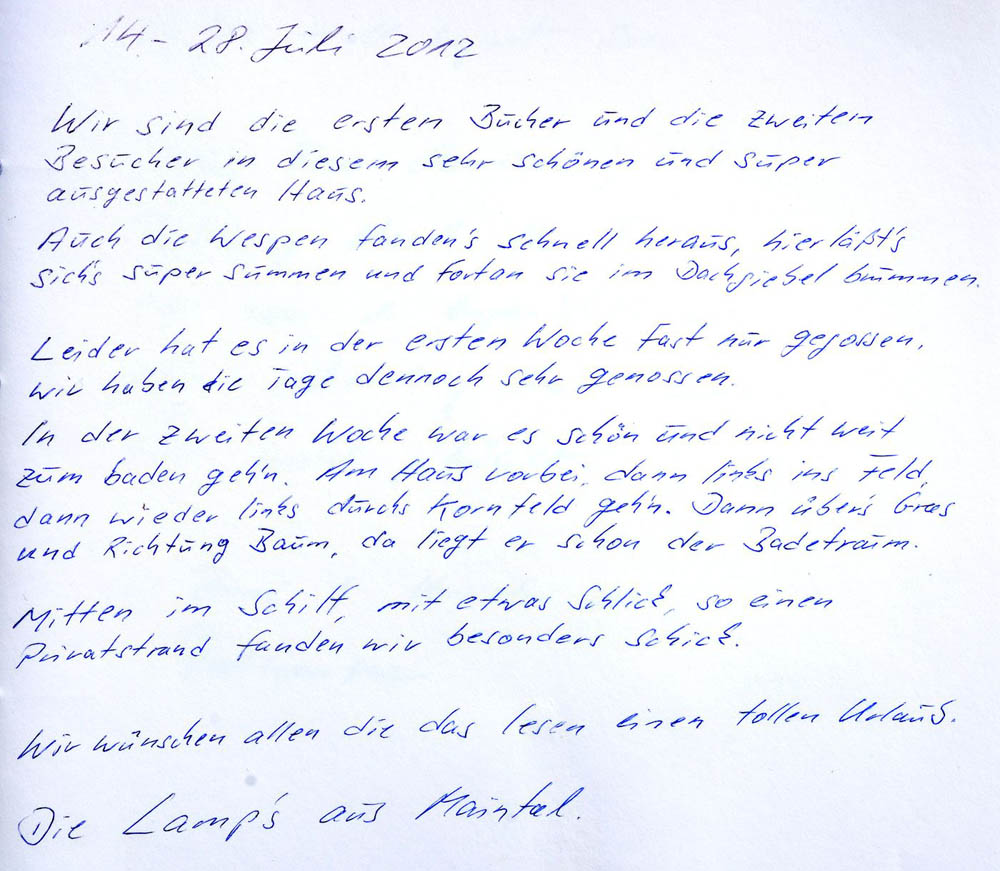 14. - 28. Juli 2012
Wir sind die ersten Bucher und die zweiten
Besucher in diesem sehr schönen und super
ausgestatteten Haus.
Auch die Wespen fanden's schnell heraus, hier läßt's
sich's super summen und fortan sie im Dachgiebel brummen.
Leider hat es in der ersten Woche fast nur gegossen,
wir haben die Tage dennoch sehr genossen.
In der zweiten Woche war es schön und nicht weit
zum baden geh'n. Am Haus vorbei, dann links ins Feld,
dann wieder links durchs Kornfeld geh'n. Dann über's Gras
und Richtung Baum, da liegt er schon der Badetraum.
Mitten im Schilf, mit etwas Schlick, so einen
Privatstrand fanden wir besonders schick.
Wir wünschen allen die das lesen einen tollen Urlaub.
Die Lamp's aus Maintal.